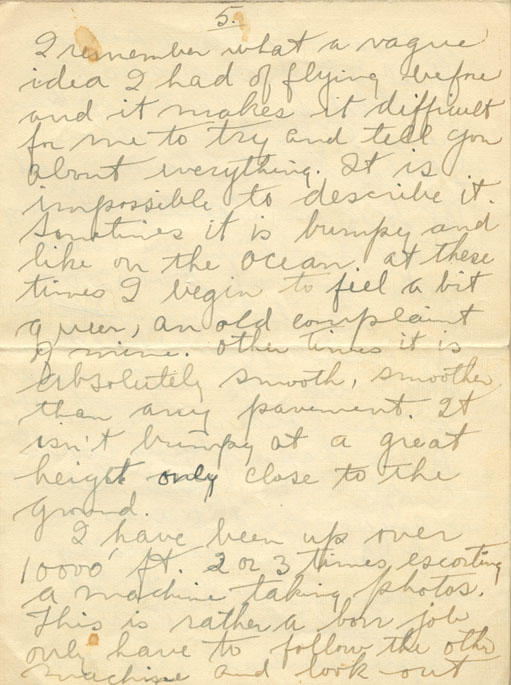 5.
I remember what a vague
idea I had of flying before
and it makes it difficult
for me to try and tell you
about everything. It is
impossible to describe it.
Sometimes it is bumpy and
like on the ocean at these
times I begin to feel a bit
queer, an old complaint
of mine. Other times it is
absolutely smooth, smoother
than any pavement. It
isn't bumpy at a great
height only close to the
ground.
I have been up over
10000' ft. 2 or 3 times, escorting
a machine taking photos.
This is rather a bon job
only have to follow the other
machine and look out